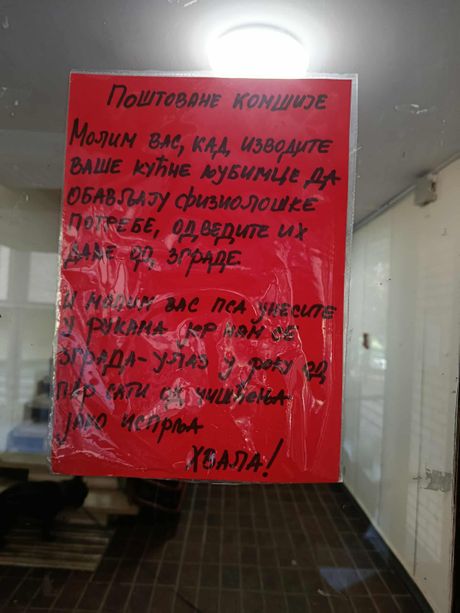 Поштоване комшије
Молим вас, кад изводите
ваше кућне љубимце да
обављају физиолошке
потребе, одведите их
даље од зграде.
И молим вас пса унесите
у рукама јер нам се
зграда-улаз у року од
пар сати од чишћења
јако испрља
Хвала!